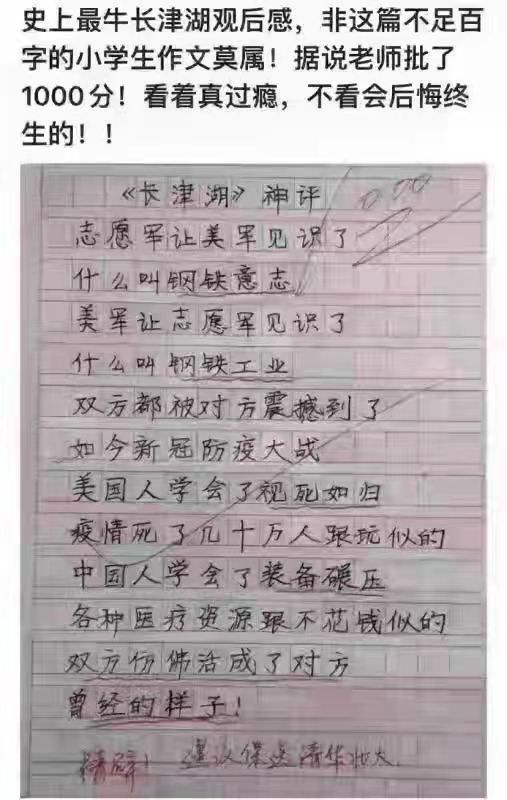 史上最牛长津湖观后感，非这篇不足百
字的小学生作文莫属！据说老师批了
1000分！看着真过瘾，不看会后悔终
生的！！
1000
《长津湖》神评
志愿军让美军见识了
什么叫钢铁意志
美军让志愿军见识了
什么叫钢铁工业
双方都被对方震撼到了
如今新冠防疫大战
美国人学会了视死如归
疫情死了几十万人跟玩似的
中国人学会了装备碾压
各种医疗资源跟不花钱似的
双方仿佛活成了对方
曾经的样子！
精辟！建议保送清华北大.